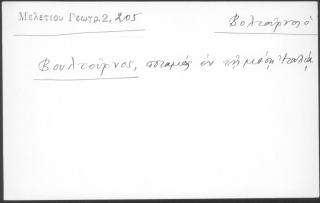 Μελετίου Γεωγρ 2, 205
Βολτούρνο, ὁ
Βουλτοῦρνος, ποταμός ἐν τῇ μέσῃ Ἰταλίᾳ